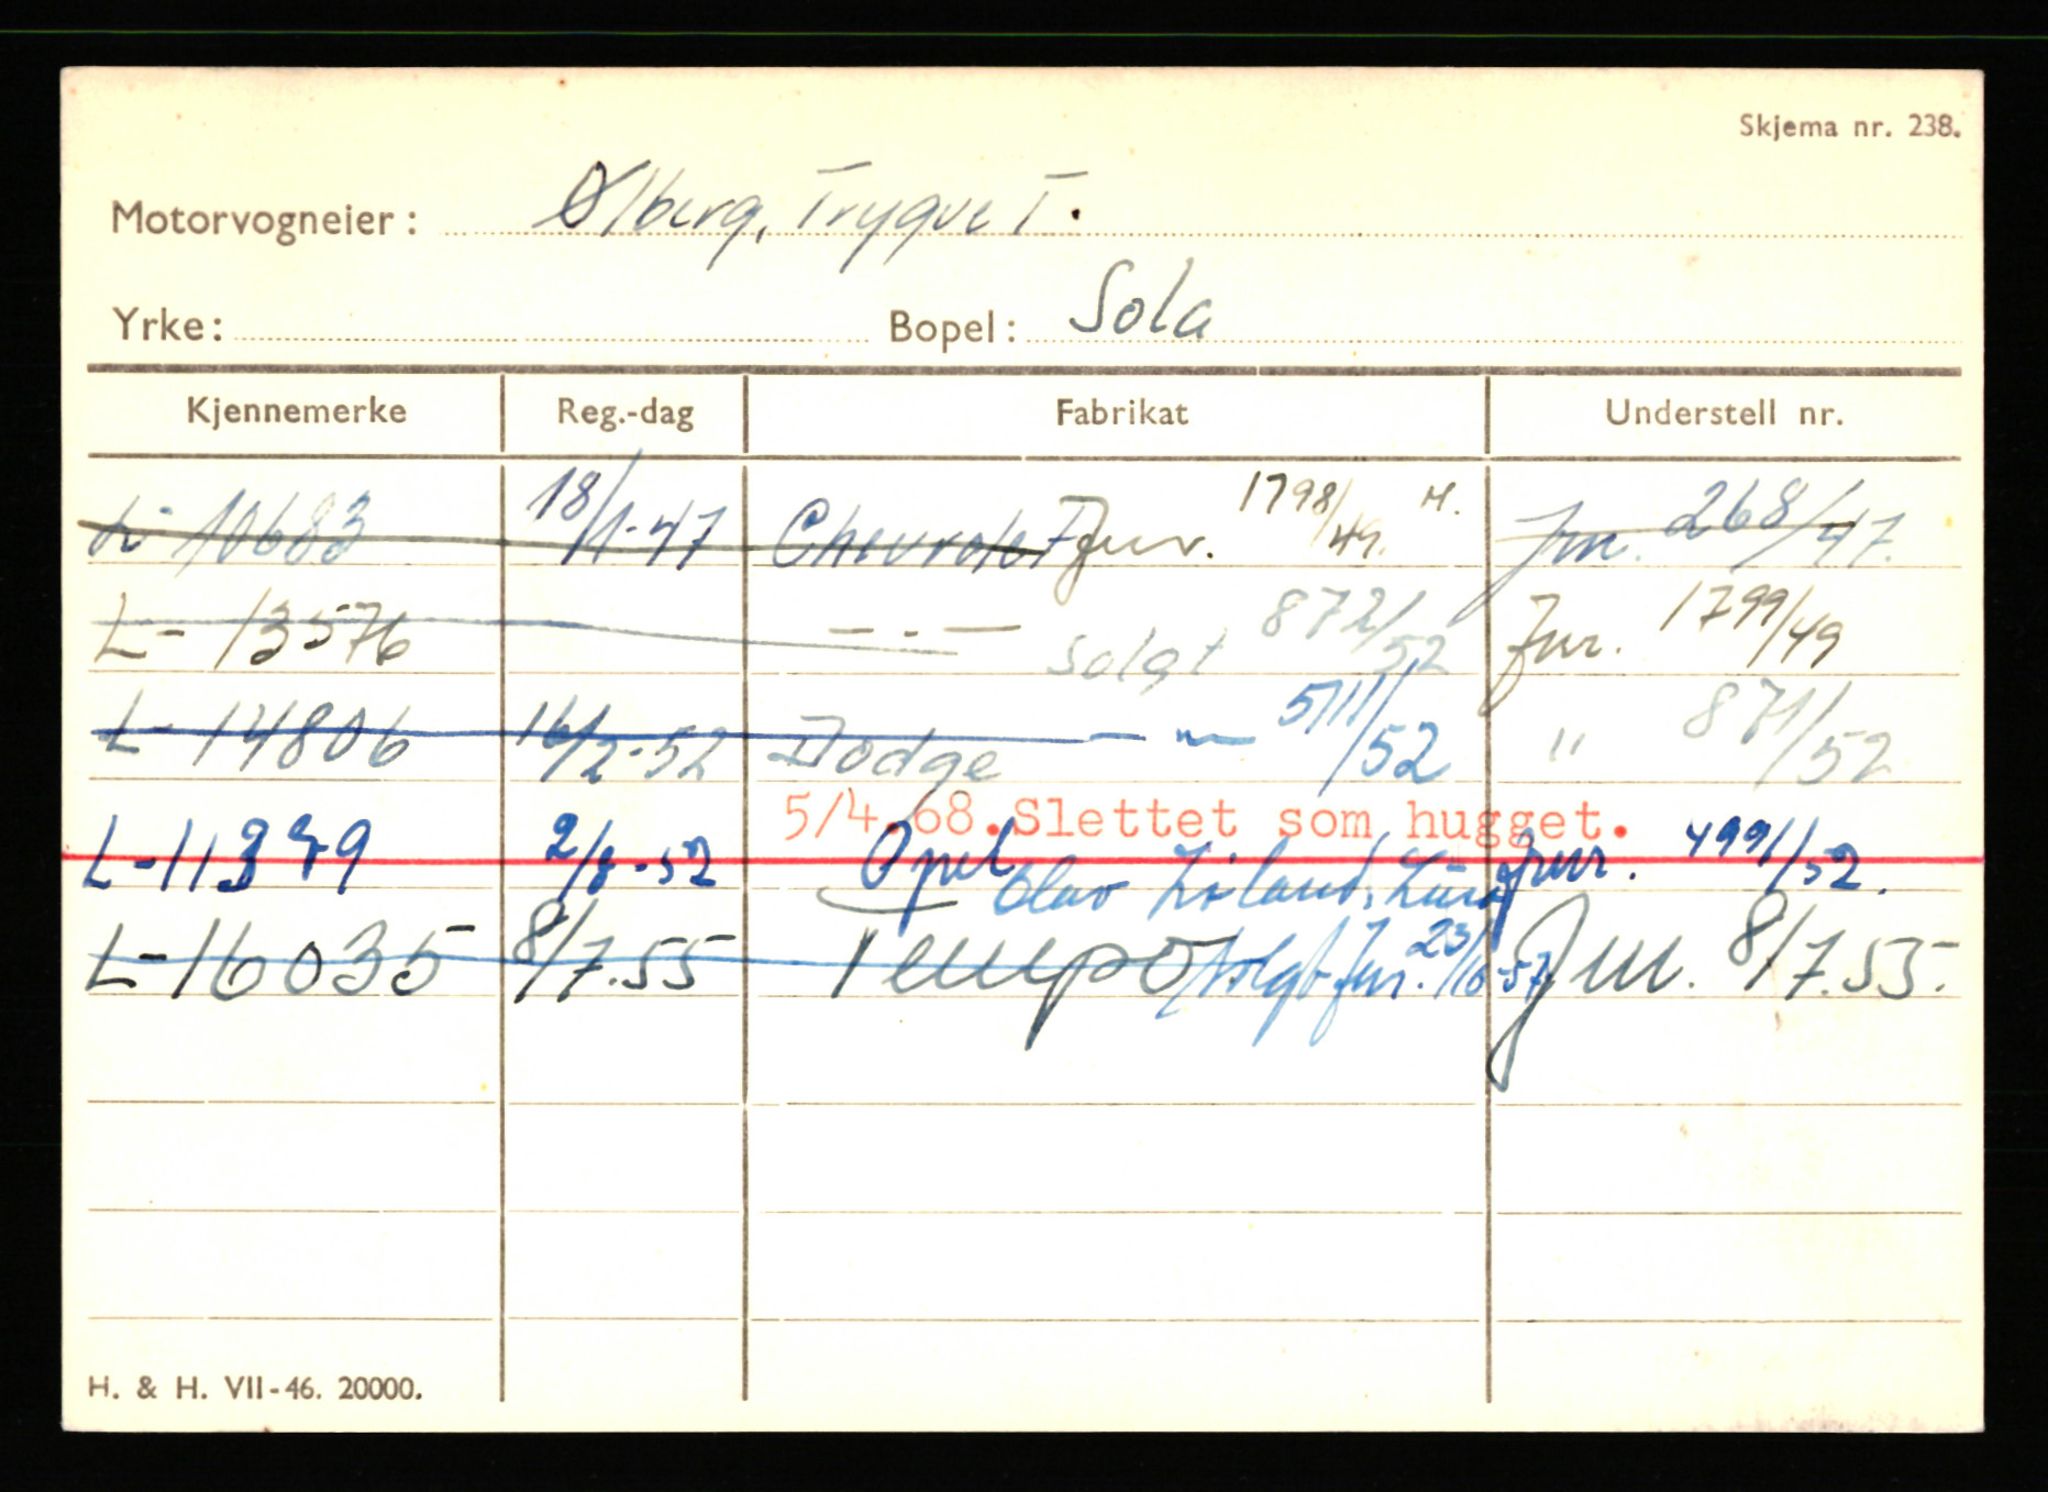 Skjema nr. 238.
Motorvogneier: Ølberg, Trygve T.
Yrke: Bopel: Sola
Kjennemerke Reg.-dag Fabrikat Understell nr.
10683 18/1-47 Chevrolet Jnr. 1798/49. Jnr. 268/47.
L-13576 — . — solgt 872/52 Jnr. 1799/49
L-14806 16/2-52 Dodge — " — 5111/52 " 871/52
5/4.68. Slettet som hugget.
L-11379 2/8-52 Opel Jnr. 4991/52.
Olav
L-16035 8/7.55 Tempo solgt Jnr. 23/10-57 Jnr. 8/7.55.
H. & H. VII-46. 20000.